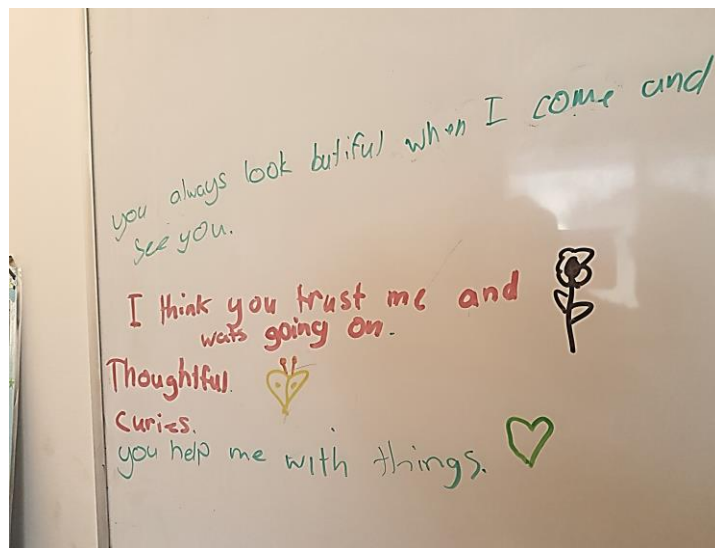 you always look butiful when I come and
see you.
I think you trust me and
wats going on.
Thoughtful.
Curies.
you help me with things.